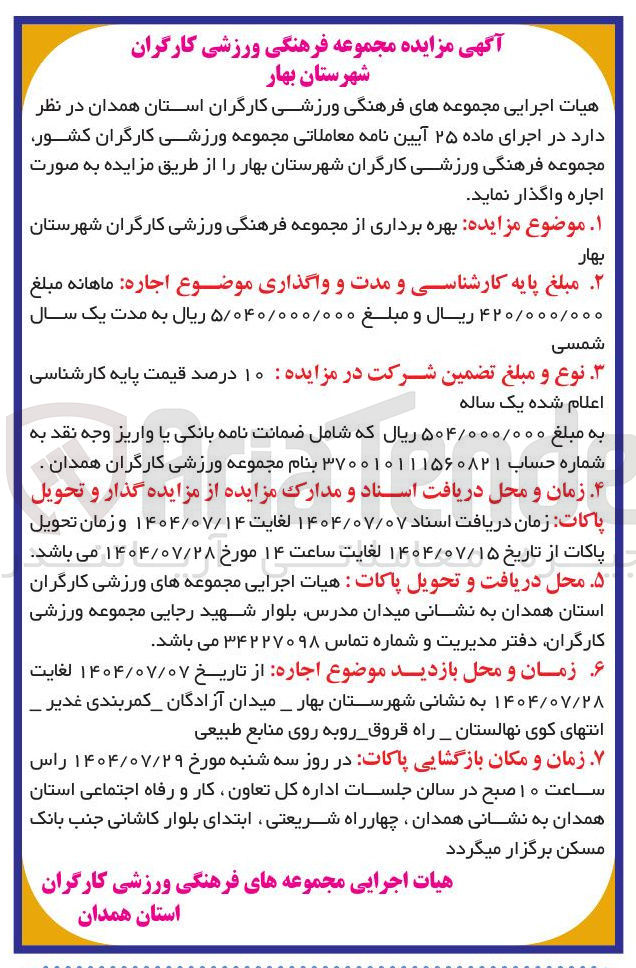 آگهی مزایده مجموعه فرهنگی ورزشی کارگران
شهرستان بهار
هیات اجرایی مجموعه های فرهنگی ورزشی کارگران استان همدان در نظر
دارد در اجرای ماده ۲۵ آیین نامه معاملاتی مجموعه ورزشی کارگران کشور،
مجموعه فرهنگی ورزشی کارگران شهرستان بهار را از طریق مزایده به صورت
اجاره واگذار نماید.
۱. موضوع مزایده: بهره برداری از مجموعه فرهنگی ورزشی کارگران شهرستان
بهار
۲. مبلغ پایه کارشناسی و مدت و واگذاری موضوع اجاره: ماهانه مبلغ
۴۲۰/۰۰۰/۰۰۰ ریال و مبلغ ۵/۰۴۰/۰۰۰/۰۰۰ ریال به مدت یک سال
شمسی
۳. نوع و مبلغ تضمین شرکت در مزایده : ۱۰ درصد قیمت پایه کارشناسی
اعلام شده یک ساله
به مبلغ ۵۰۴/۰۰۰/۰۰۰ ریال که شامل ضمانت نامه بانکی یا واریز وجه نقد به
شماره حساب ۳۷۰۰۱۰۱۱۱۵۶۰۸۲۱ بنام مجموعه ورزشی کارگران همدان .
۴. زمان و محل دریافت اسناد و مدارک مزایده از مزایده گذار و تحویل
پاکات: زمان دریافت اسناد ۱۴۰۴/۰۷/۰۷ لغایت ۱۴۰۴/۰۷/۱۴ و زمان تحویل
پاکات از تاریخ ۱۴۰۴/۰۷/۱۵ لغایت ساعت ۱۴ مورخ ۱۴۰۴/۰۷/۲۸ می باشد.
۵. محل دریافت و تحویل پاکات : هیات اجرایی مجموعه های ورزشی کارگران
استان همدان به نشانی میدان مدرس، بلوار شهید رجایی مجموعه ورزشی
کارگران، دفتر مدیریت و شماره تماس ۳۴۲۲۷۰۹۸ می باشد.
۶. زمان و محل بازدید موضوع اجاره: از تاریخ ۱۴۰۴/۰۷/۰۷ لغایت
۱۴۰۴/۰۷/۲۸ به نشانی شهرستان بهار _ میدان آزادگان _کمربندی غدیر _
انتهای کوی نهالستان _ راه قروق_روبه روی منابع طبیعی
۷. زمان و مکان بازگشایی پاکات: در روز سه شنبه مورخ ۱۴۰۴/۰۷/۲۹ راس
ساعت ۱۰صبح در سالن جلسات اداره کل تعاون ، کار و رفاه اجتماعی استان
همدان به نشانی همدان ، چهارراه شریعتی ، ابتدای بلوار کاشانی جنب بانک
مسکن برگزار میگردد
هیات اجرایی مجموعه های فرهنگی ورزشی کارگران
استان همدان
AriaTende